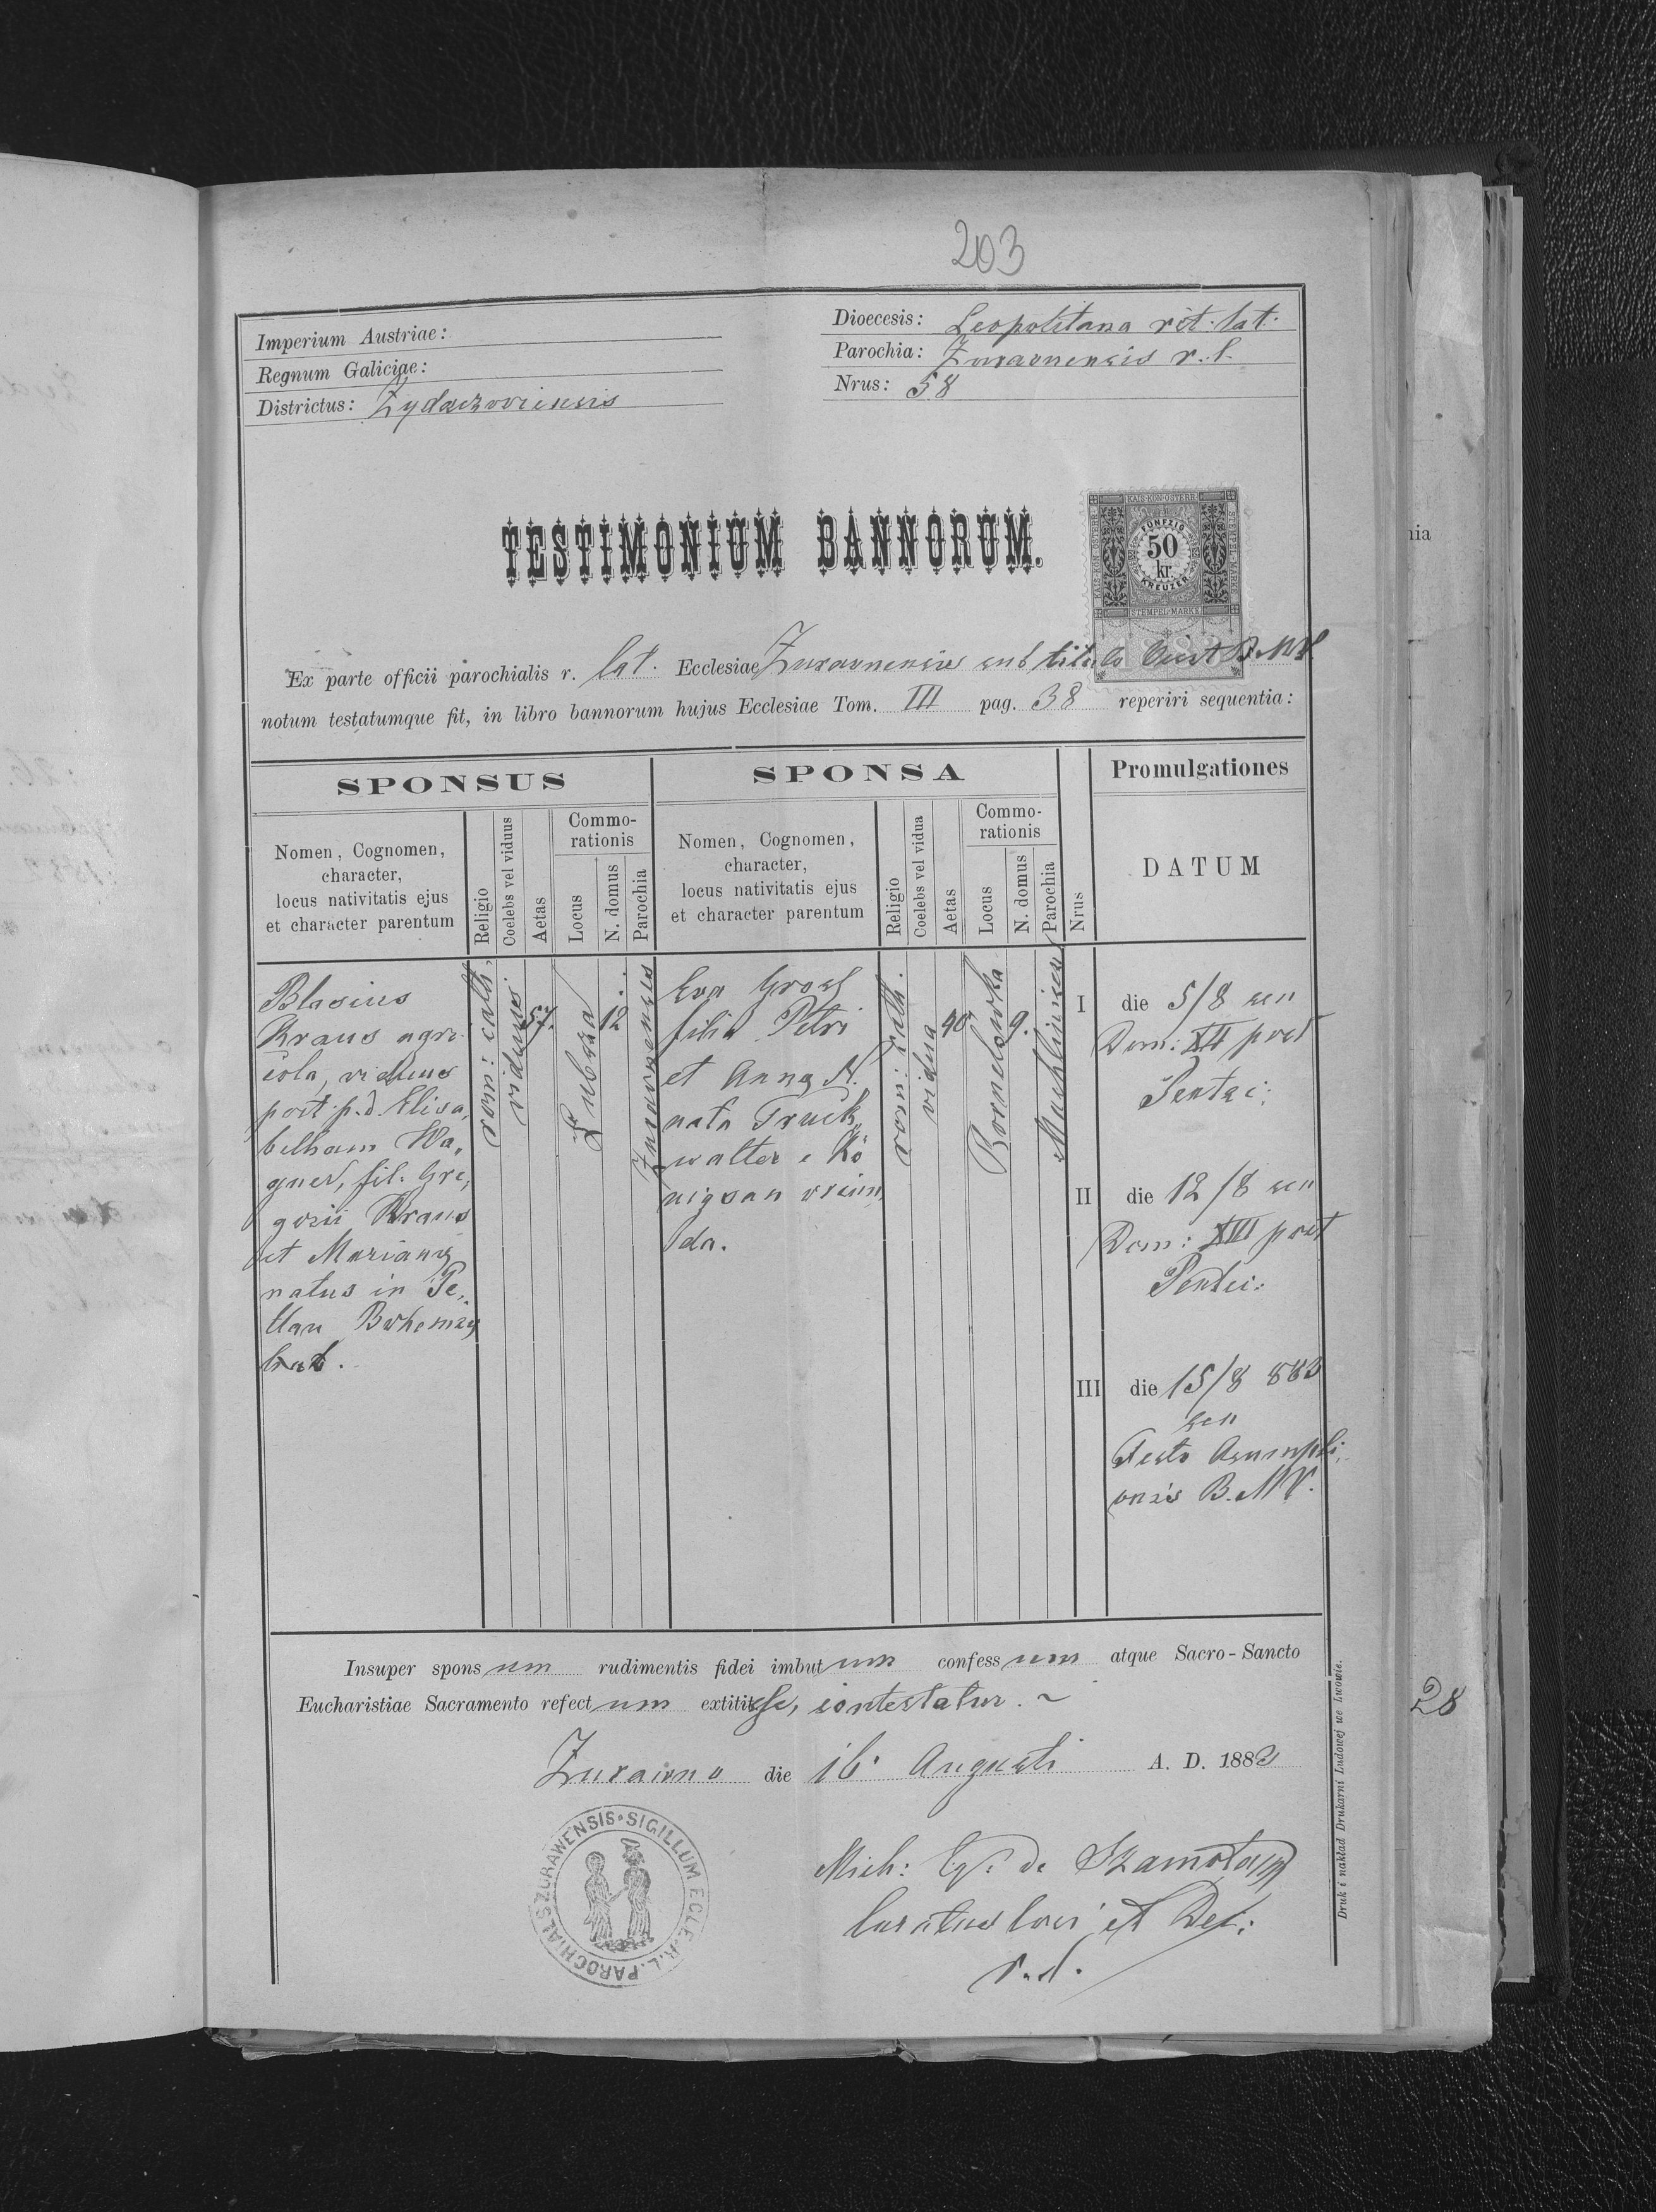 203
Imperium Austriae:
Regnum Galiciae:
Districtus: Żydaczoviensis
Dioecesis: Leopolitana rit. lat.
Parochia: Żurawnensis r. l.
Nrus: 58
TESTIMONIUM BANNORUM.
KAIS·KÖN·ÖSTERR.
FÜNFZIG
50
kr.
KREUZER
STEMPEL-MARKE
Ex parte officii parochialis r. lat. Ecclesiae Żurawnensis sub titulo B.M.V.
notum testatumque fit, in libro bannorum hujus Ecclesiae Tom. III pag. 38 reperiri sequentia:
SPONSUS
SPONSA
Promulgationes
Nomen, Cognomen,
character,
locus nativitatis ejus
et character parentum
Religio
Coelebs vel viduus
Aetas
Commo-
rationis
Locus
N. domus
Parochia
Nomen, Cognomen,
character,
locus nativitatis ejus
et character parentum
Religio
Coelebs vel vidua
Aetas
Commo-
rationis
Locus
N. domus
Parochia
Nrus
DATUM
Blasius
Kraus agri
cola, viduus
post p. d. Elisa,
betham Wa,
gner, fil. Gre,
gorii Kraus
et Marianny
natus in Pe,
tlau Bohemiy
rom: cath.
viduus
57.
Lubsza
12.
Żurawnensis
Eva Grosz
filia Petri
et Anna N.
nata Truck,
walter e Kö
nigsau oriun,
da.
rom: cath.
vidua
40
9.
Machliniec
I die 5/8 seu
Dom: XII post
Pentec:
II die 12/8 seu
Dom: XIII post
Pentec:
III die 15/8 883
seu
Festo Assumpti,
onis B. M V.
Insuper sponsum rudimentis fidei imbutum confessum atque Sacro-Sancto
Eucharistiae Sacramento refectum extitisse, contestatur.
Żurawno die 16. Augusti A. D. 1883
SIGILLUM ECCLE. R. L. PAROCHIALIS ZURAWENSIS
Mich: Eq. de Szamota
Curatus loci et Dec:
r. l.
Druk i nakład Drukarni Ludowej we Lwowie.
nia
28